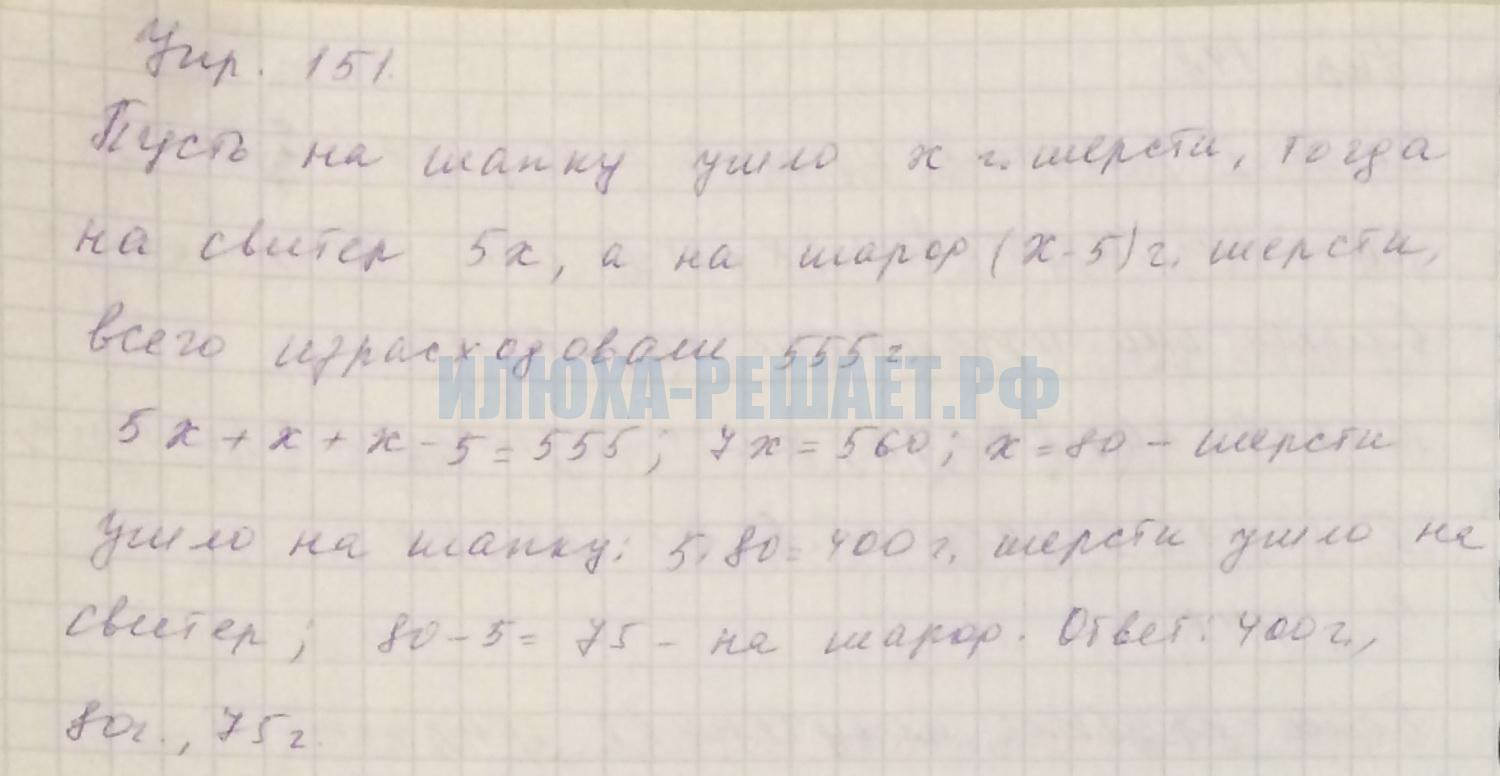 Упр. 151.
Пусть на шапку ушло x г. шерсти, тогда
на свитер 5x, а на шарф (x-5) г. шерсти,
всего израсходовали 555 г.
ИЛЮХА-РЕШАЕТ.РФ
5x + x + x - 5 = 555; 7x = 560; x = 80 - шерсти
ушло на шапку; 5·80=400 г. шерсти ушло на
свитер; 80-5= 75 - на шарф. Ответ: 400 г.,
80 г., 75 г.